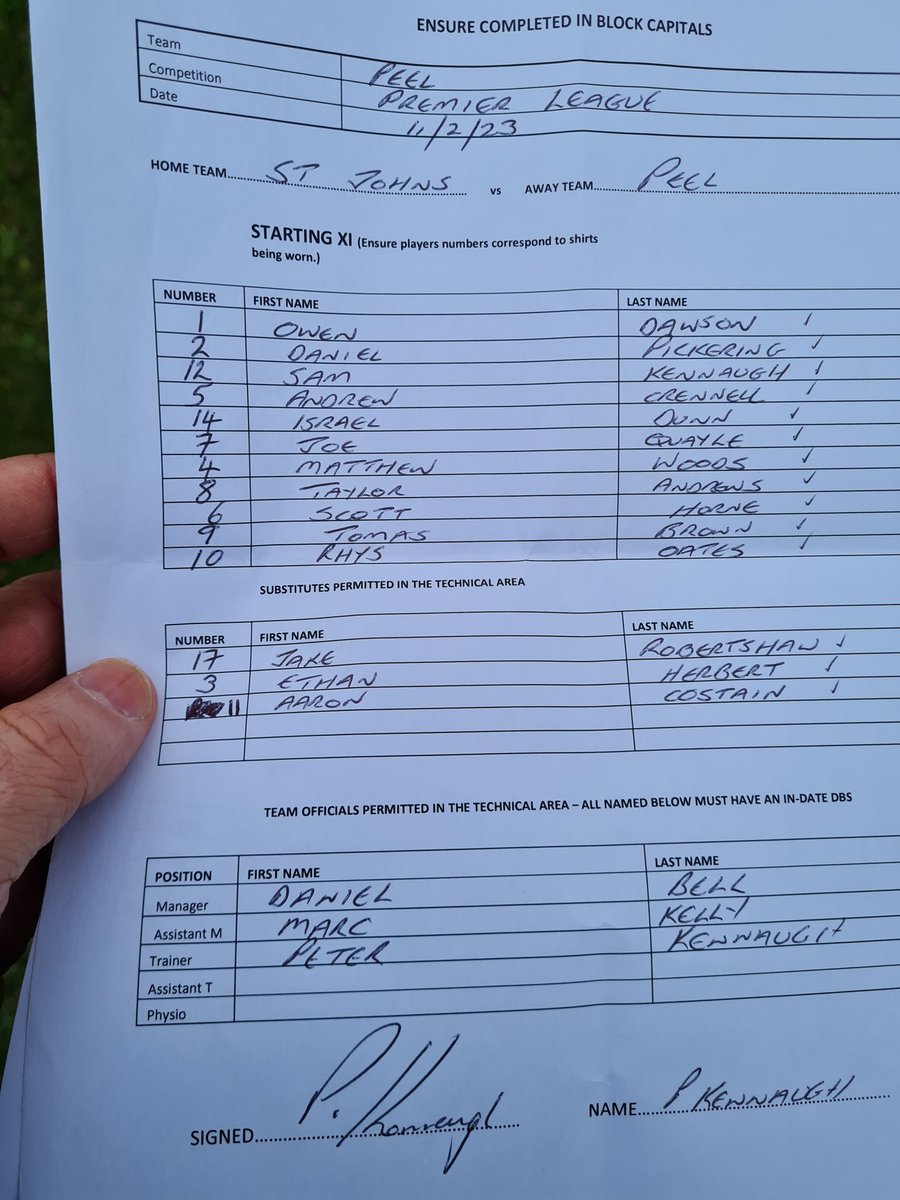 ENSURE COMPLETED IN BLOCK CAPITALS
Team PEEL
Competition PREMIER LEAGUE
Date 11/2/23
HOME TEAM ST JOHNS vs AWAY TEAM PEEL
STARTING XI (Ensure players numbers correspond to shirts
being worn.)
NUMBER FIRST NAME LAST NAME
1 OWEN DAWSON ✓
2 DANIEL PICKERING ✓
12 SAM KENNAUGH ✓
5 ANDREW CRENNELL ✓
14 ISRAEL DUNN ✓
7 JOE QUAYLE ✓
4 MATTHEW WOODS ✓
8 TAYLOR ANDREWS ✓
6 SCOTT HORNE ✓
9 TOMAS BROWN ✓
10 RHYS OATES ✓
SUBSTITUTES PERMITTED IN THE TECHNICAL AREA
NUMBER FIRST NAME LAST NAME
17 JAKE ROBERTSHAW ✓
3 ETHAN HERBERT ✓
11 AARON COSTAIN ✓
TEAM OFFICIALS PERMITTED IN THE TECHNICAL AREA – ALL NAMED BELOW MUST HAVE AN IN-DATE DBS
POSITION FIRST NAME LAST NAME
Manager DANIEL BELL
Assistant M MARC KELLY
Trainer PETER KENNAUGH
Assistant T
Physio
SIGNED P. Kennaugh NAME P KENNAUGH